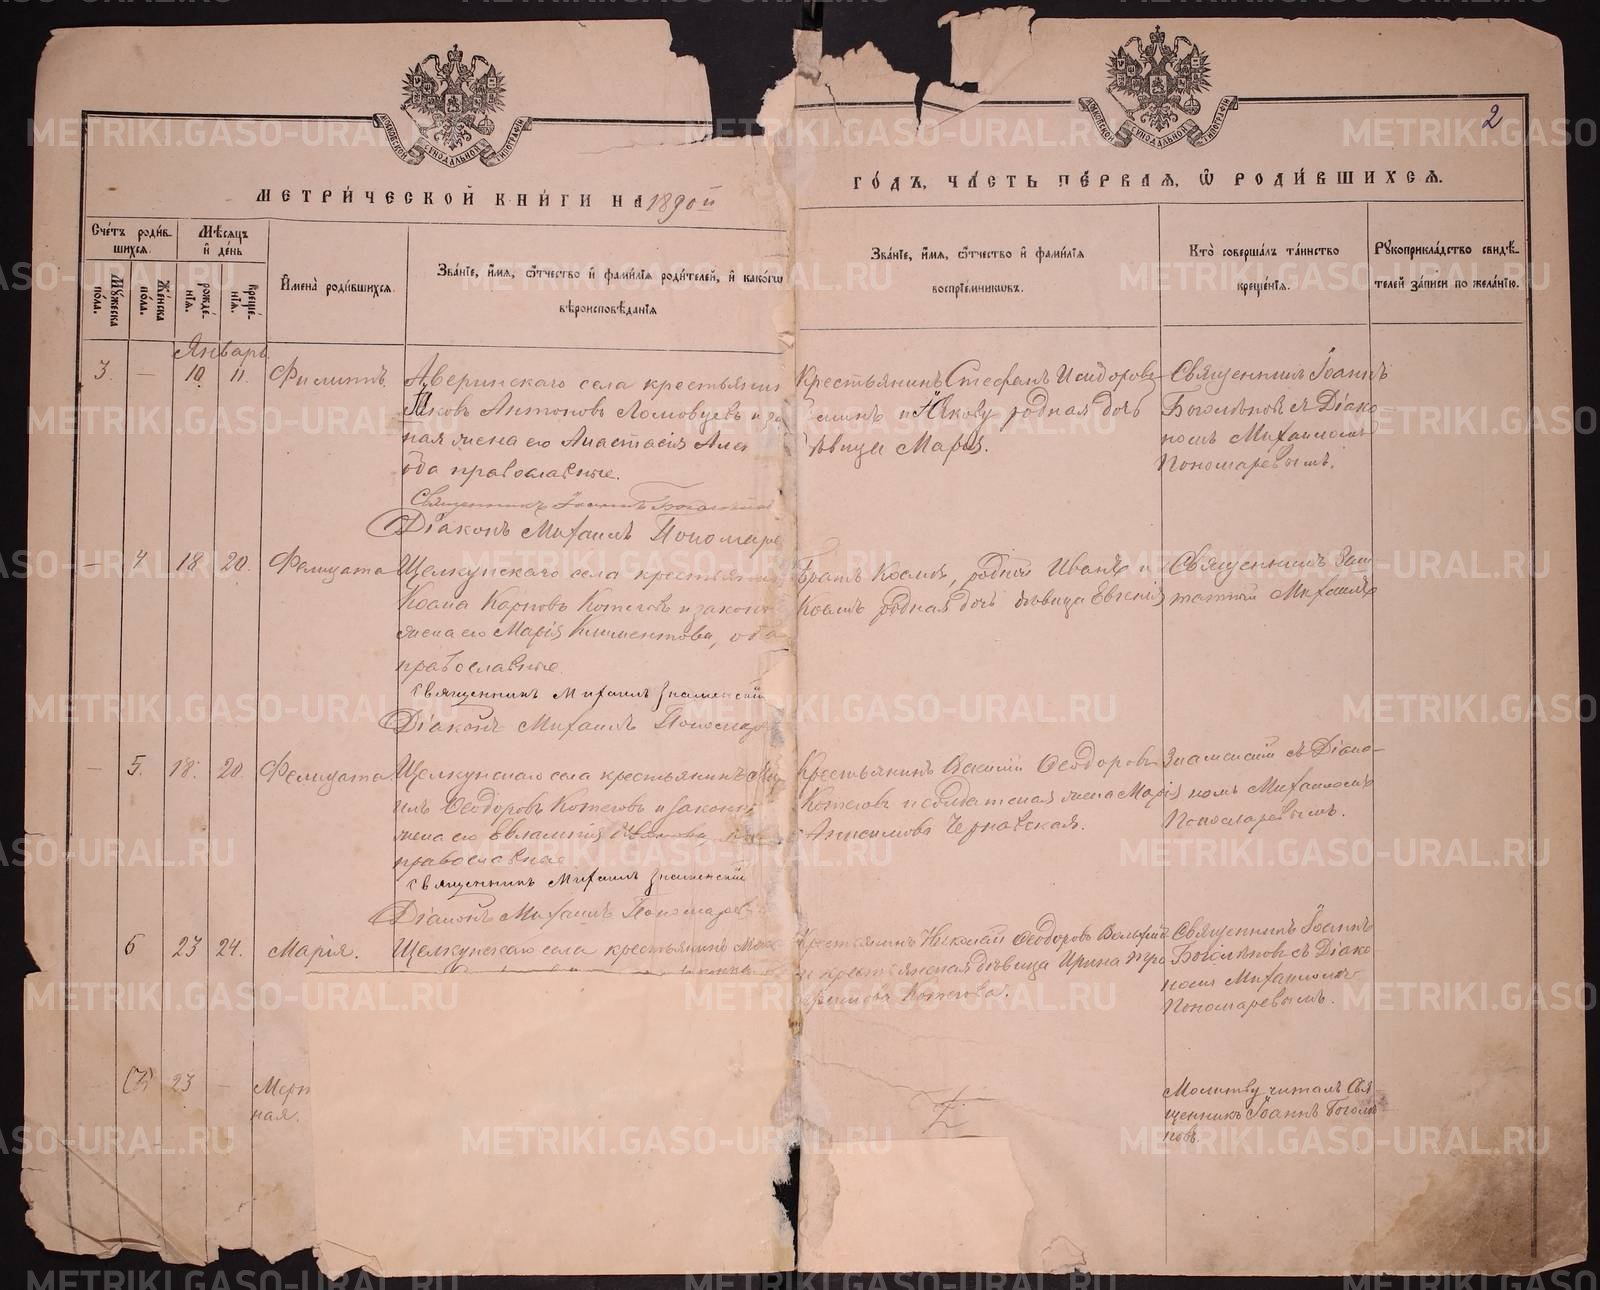 2
МОСКОВСКОЙ СѴНОДАЛЬНОЙ ТИПОГРАФІИ
МОСКОВСКОЙ СѴНОДАЛЬНОЙ ТИПОГРАФІИ
МЕТРИ́ЧЕСКОЙ КНИ́ГИ НА 1890й
ГО́ДЪ, ЧА́СТЬ ПЕ́РВАЯ, Ѽ РОДИ́ВШИХСЯ.
Сче́тъ роди́вшихся.
Мѣ́сяцъ и́ де́нь
Му́жеска по́ла.
Же́нска по́ла.
рожде́нїя.
креще́нїя.
И҆мена̀ роди́вшихся
Зва́нїе, и҆́мя, ѻ҆́тчество и҆ фами́лїя роди́телей, и҆ како́гѡ
вѣроисповѣ́данїя
Зва́нїе, и҆́мя, ѻ҆́тчество и҆ фами́лїя
воспрїе́мниковъ.
Кто̀ соверша́лъ та́инство
креще́нїя.
Рукоприкла́дство свидѣ́-
телей за́писи по жела́нїю.
Январь
3. — 10. 11. Филиппъ.
Аверинскаго села крестьянин
Яковъ Антоновъ Ломовцевъ и зако
ная жена его Анастасія Але
оба православные.
Священникъ Іоаннъ Боголѣпов
Діаконъ Михаилъ Пономаре
Крестьянинъ Стефанъ Исидоровъ
и Якову родная дочь
дѣвица Марья.
Священникъ Іоаннъ
Боголѣповъ съ Діако-
номъ Михаиломъ
Пономаревымъ.
— 4 18 20. Фелицата
Щелкунскаго села крестьянинъ
Косма Карповъ Котеговъ и законн
жена его Марія Климентова, оба
православные.
Священникъ Михаилъ Знаменскій
Діаконъ Михаилъ Пономар
Братъ Космы, родной Иванъ и
Космы родная дочь дѣвица Евгенія
Священникъ Заш-
татный Михаилъ
— 5. 18. 20. Фелицата
Щелкунскаго села крестьянинъ
илъ Ѳеодоровъ Котеговъ и законн
жена его Евлампія Иванова,
православные
Священникъ Михаилъ Знаменскій
Діаконъ Михаилъ Пономарев
Крестьянинъ Василій Ѳеодоровъ
Котеговъ и солдатская жена Марія
Анисимова Чернавская.
Знаменскій съ Діако-
номъ Михаиломъ
Пономаревымъ.
6 23 24. Марія.
Щелкунскаго села крестьянинъ
Крестьянинъ Николай Ѳеодоровъ
и крестьянская дѣвица Ирина
Котегова.
Священникъ Іоаннъ
Боголѣповъ съ Діако
номъ Михаиломъ
Пономаревымъ.
(7) 23 — Мерт
ная.
Молитву читалъ Свя-
щенникъ Іоаннъ Боголѣ
повъ.
METRIKI.GASO-URAL.RU